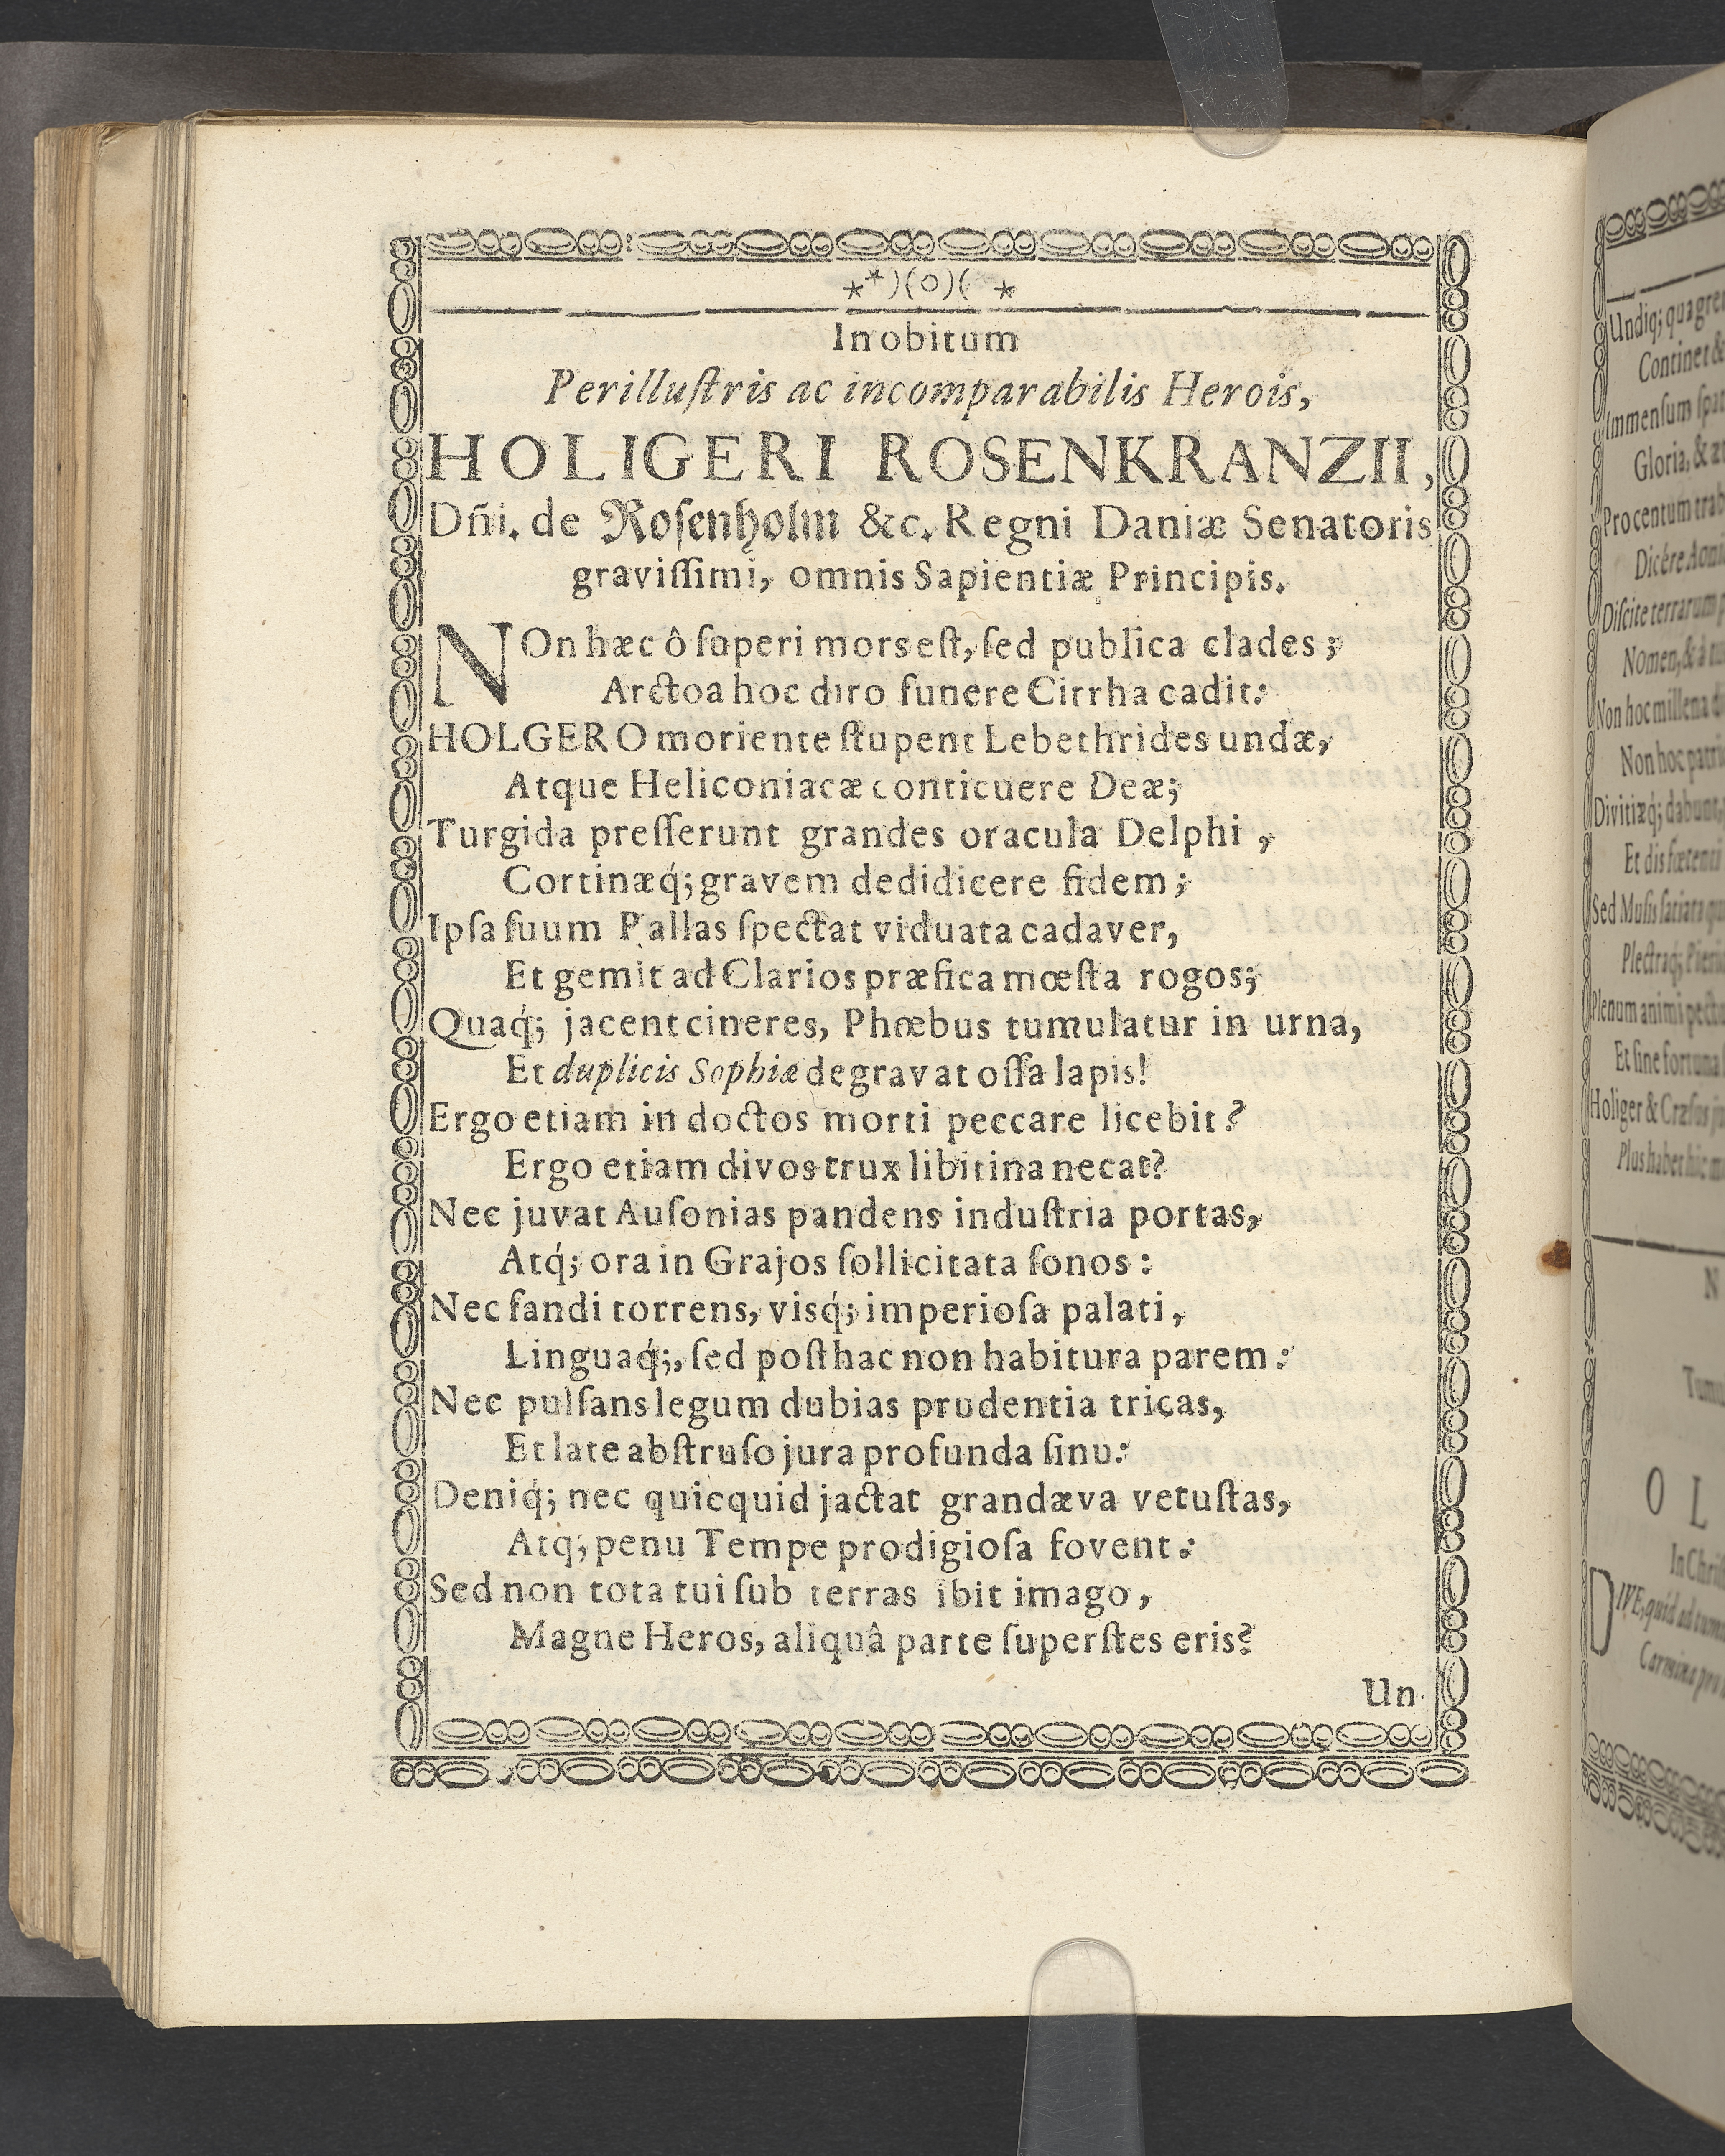 **)(o)( *
In obitum
Perilluſtris ac incomparabilis Herois,
HOLIGERI ROSENKRANZII,
Dñi. de Roſenholm &c. Regni Daniæ Senatoris
graviſſimi, omnis Sapientiæ Principis.
NOn hæc ô ſuperi mors eſt, ſed publica clades;
Arctoa hoc diro funere Cirrha cadit:
HOLGERO moriente ſtupent Lebethrides undæ,
Atque Heliconiacæ conticuere Deæ;
Turgida preſſerunt grandes oracula Delphi,
Cortinæq́; gravem dedidicere fidem;
Ipſa ſuum Pallas ſpectat viduata cadaver,
Et gemit ad Clarios præfica mœſta rogos;
Quaq́; jacent cineres, Phœbus tumulatur in urna,
Et duplicis Sophiæ degravat oſſa lapis!
Ergo etiam in doctos morti peccare licebit?
Ergo etiam divos trux libitina necat?
Nec juvat Auſonias pandens induſtria portas,
Atq́; ora in Grajos ſollicitata ſonos:
Nec fandi torrens, visq́; imperioſa palati,
Linguaq́;, ſed poſthac non habitura parem:
Nec pulſans legum dubias prudentia tricas,
Et late abſtruſo jura profunda ſinu:
Deniq́; nec quicquid jactat grandæva vetuſtas,
Atq́; penu Tempe prodigioſa fovent:
Sed non tota tui ſub terras ibit imago,
Magne Heros, aliquâ parte ſuperſtes eris?
Un
Undiq́; qua
Continet &
Immenſum
Gloria, &
Pro centum
Dicere
Diſcite terrarum
Nomen, & à
Non hoc millena
Non hoc
Divitiæq́; dabunt,
Et dis
Sed Muſis ſatiata
Plectraq́;
Plenum animi
Et ſine fortuna
Holiger & Cræſus
Plus habet hic
N
O L
DIVE, quid ad
Carmina pro